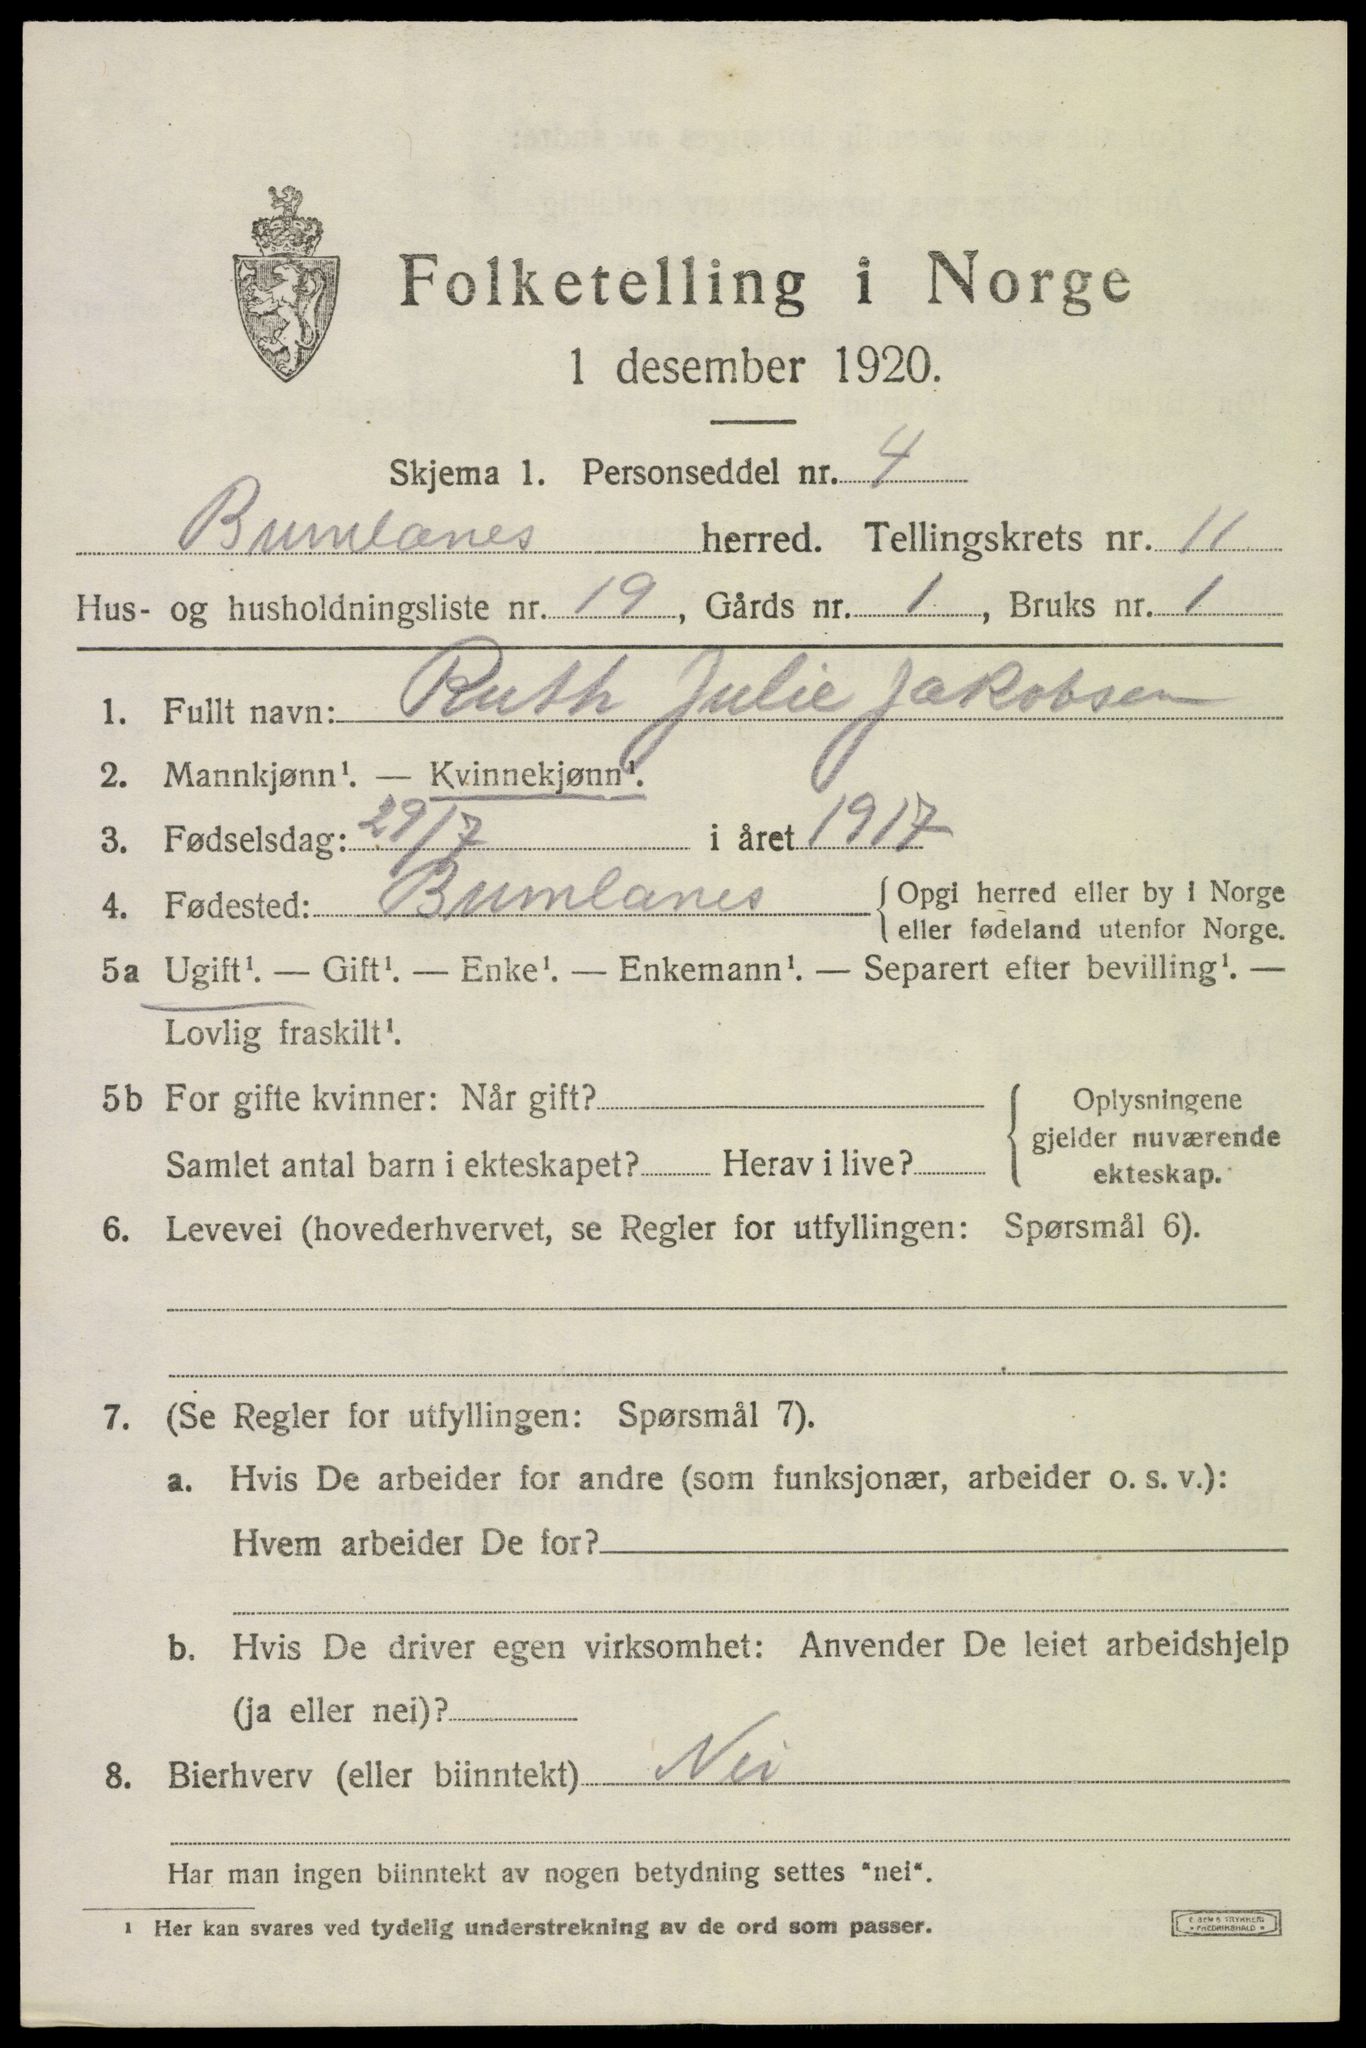 Folketelling i Norge
1 desember 1920.
Skjema 1. Personseddel nr. 4
Brunlanes herred. Tellingskrets nr. 11
Hus- og husholdningsliste nr. 19, Gårds nr. 1, Bruks nr. 1
1. Fullt navn: Ruth Julie Jakobsen
2. Mannkjønn¹. — Kvinnekjønn¹.
3. Fødselsdag: 29/7 i året 1917
4. Fødested: Brunlanes { Opgi herred eller by i Norge
eller fødeland utenfor Norge.
5a Ugift¹. — Gift¹. — Enke¹. — Enkemann¹. — Separert efter bevilling¹. —
Lovlig fraskilt¹.
5b For gifte kvinner: Når gift? { Oplysningene
gjelder nuværende
Samlet antal barn i ekteskapet? Herav i live?
ekteskap.
6. Levevei (hovederhvervet, se Regler for utfyllingen: Spørsmål 6).
7. (Se Regler for utfyllingen: Spørsmål 7).
a. Hvis De arbeider for andre (som funksjonær, arbeider o. s. v.):
Hvem arbeider De for?
b. Hvis De driver egen virksomhet: Anvender De leiet arbeidshjelp
(ja eller nei)?
8. Bierhverv (eller biinntekt) Nei
Har man ingen biinntekt av nogen betydning settes "nei".
¹ Her kan svares ved tydelig understrekning av de ord som passer.
FREDRIKSHALD